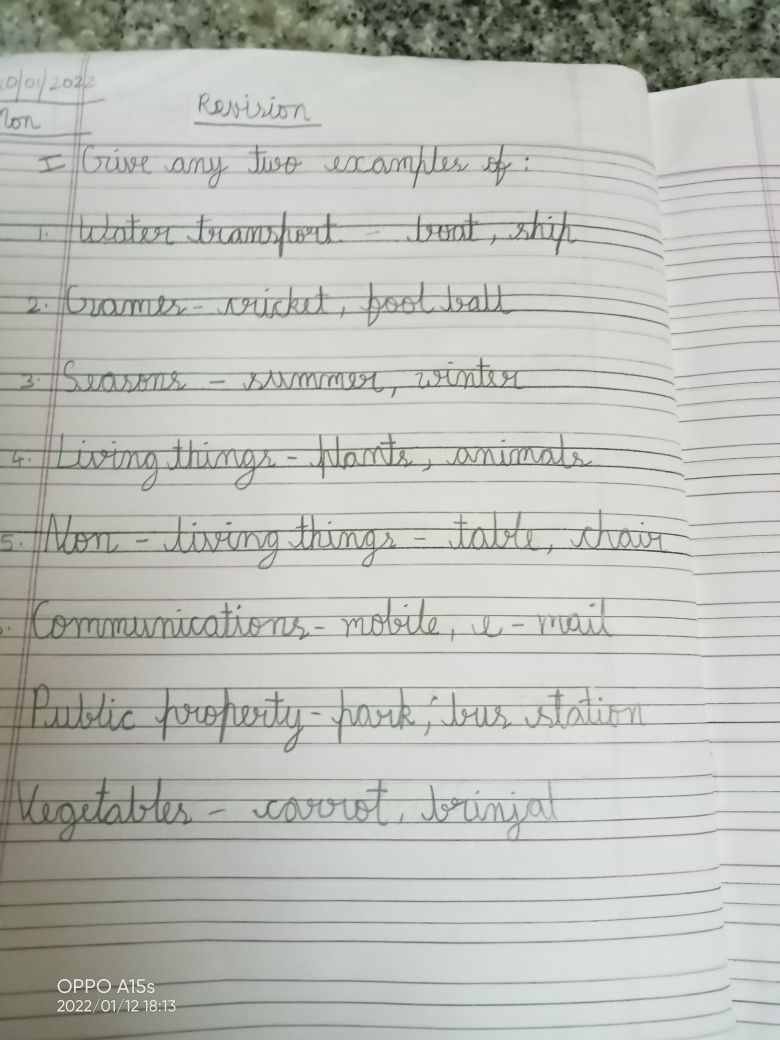 10/01/2022
Mon
Revision
I Give any two examples of:
1. Water transport - boat, ship
2. Games - cricket, foot ball
3. Seasons - summer, winter
4. Living things - plants, animals
5. Non - living things - table, chair
Communications - mobile, e - mail
Public property - park, bus station
Vegetables - carrot, brinjal
OPPO A15s
2022/01/12 18:13